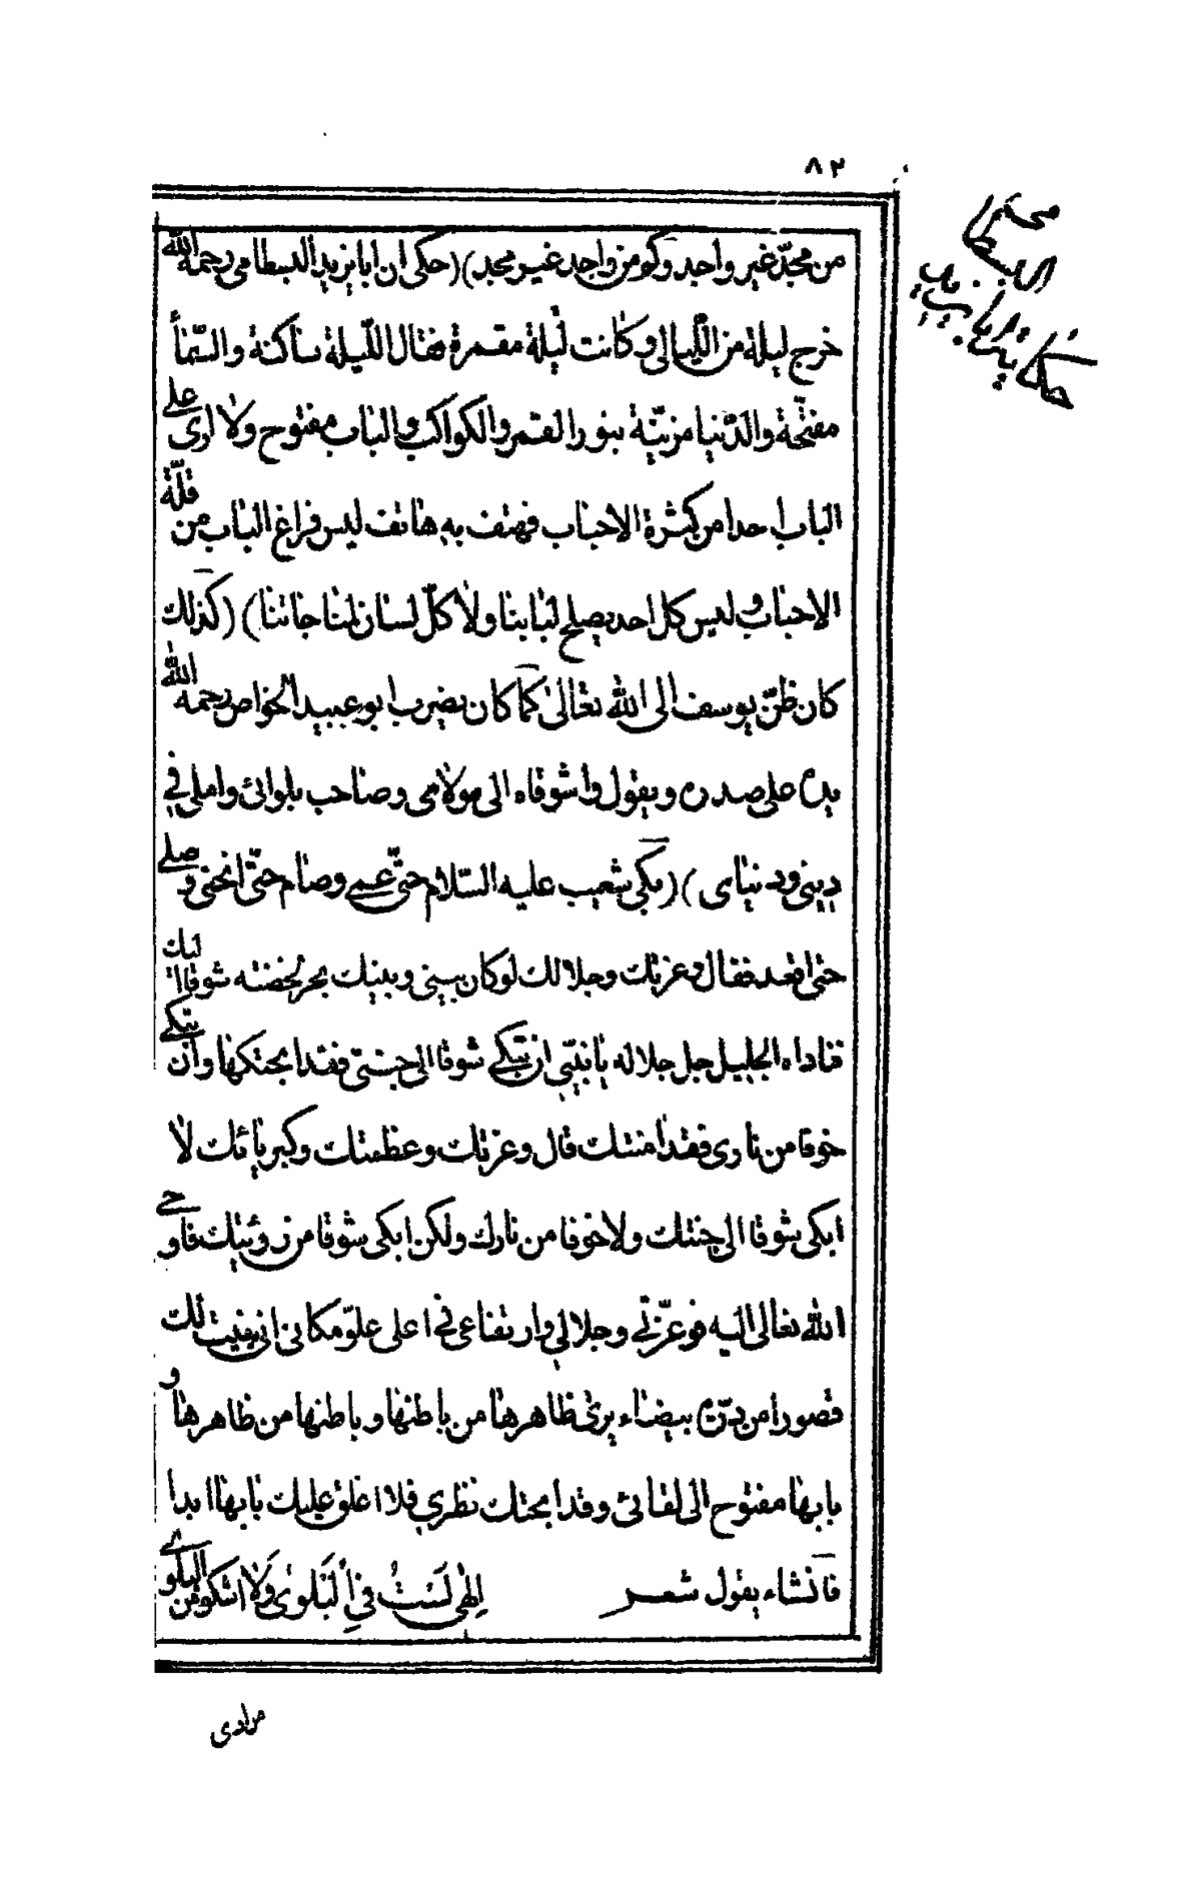 ٨٢
من مجدّ غير واجد وكو من واجد غير مجد)(حكى ان ابا يزيد البسطامى رحمه الله
خرج ليلة من الليالى وكانت ليلة مقمرة فقال الليلة ساكنة والسّمأ
مفتّحة والدّنيا مزيّنة بنور القمر والكواكب والباب مفتوح ولا ارى على
الباب احدا من كثرة الاحباب فهتف به هاتف ليس فراغ الباب من قلّة
الاحباب وليس كل احد يصلح لبابنا ولا كلّ لسان لمناجاتنا)(كذلك
كان ظنّ يوسف الى الله تعالى كما كان يضرب ابو عبيد الخواص رحمه الله
يده على صدره ويقول وا شوقاه الى مولامى وصاحب بلوائى واملى فى
دينى ودنياى)(بكى شعيب عليه السّلام حتّى عمى وصام حتّى انحنى وصلى
حتى اقعد فقال وعزتك وجلالك لو كان بينى وبينك بحر لخضته شوقا اليك
فناداه الجليل جل جلاله يا نبيّى ان تبكى شوقا الى جنتى فقد ابحتكها وان تبكى
خوفا من نارى فقد امنتك قال وعزتك وعظمتك وكبريائك لا
ابكى شوقا الى جنتك ولا خوفا من نارك ولكن ابكى شوقا من رؤيتك فاوحى
الله تعالى اليه فوعزّتى وجلالى وارتفاعى فى اعلى علوّ مكانى انى بنيت لك
قصورا من درّة بيضاء يرى ظاهرها من باطنها وباطنها من ظاهرها و
بابها مفتوح الى لقائى وقد ابحتك نظرى فلا اغلق عليك بابها ابدا
فانشاء يقول شعر الهى لست فى البلوى ولا اشكو من البلوى
مرادى